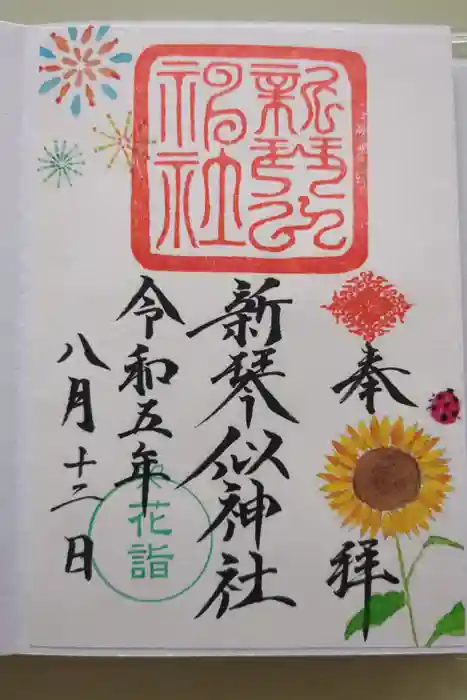 奉拝
新琴似
神社
新琴似神社
令和五年
八月十三日
花詣